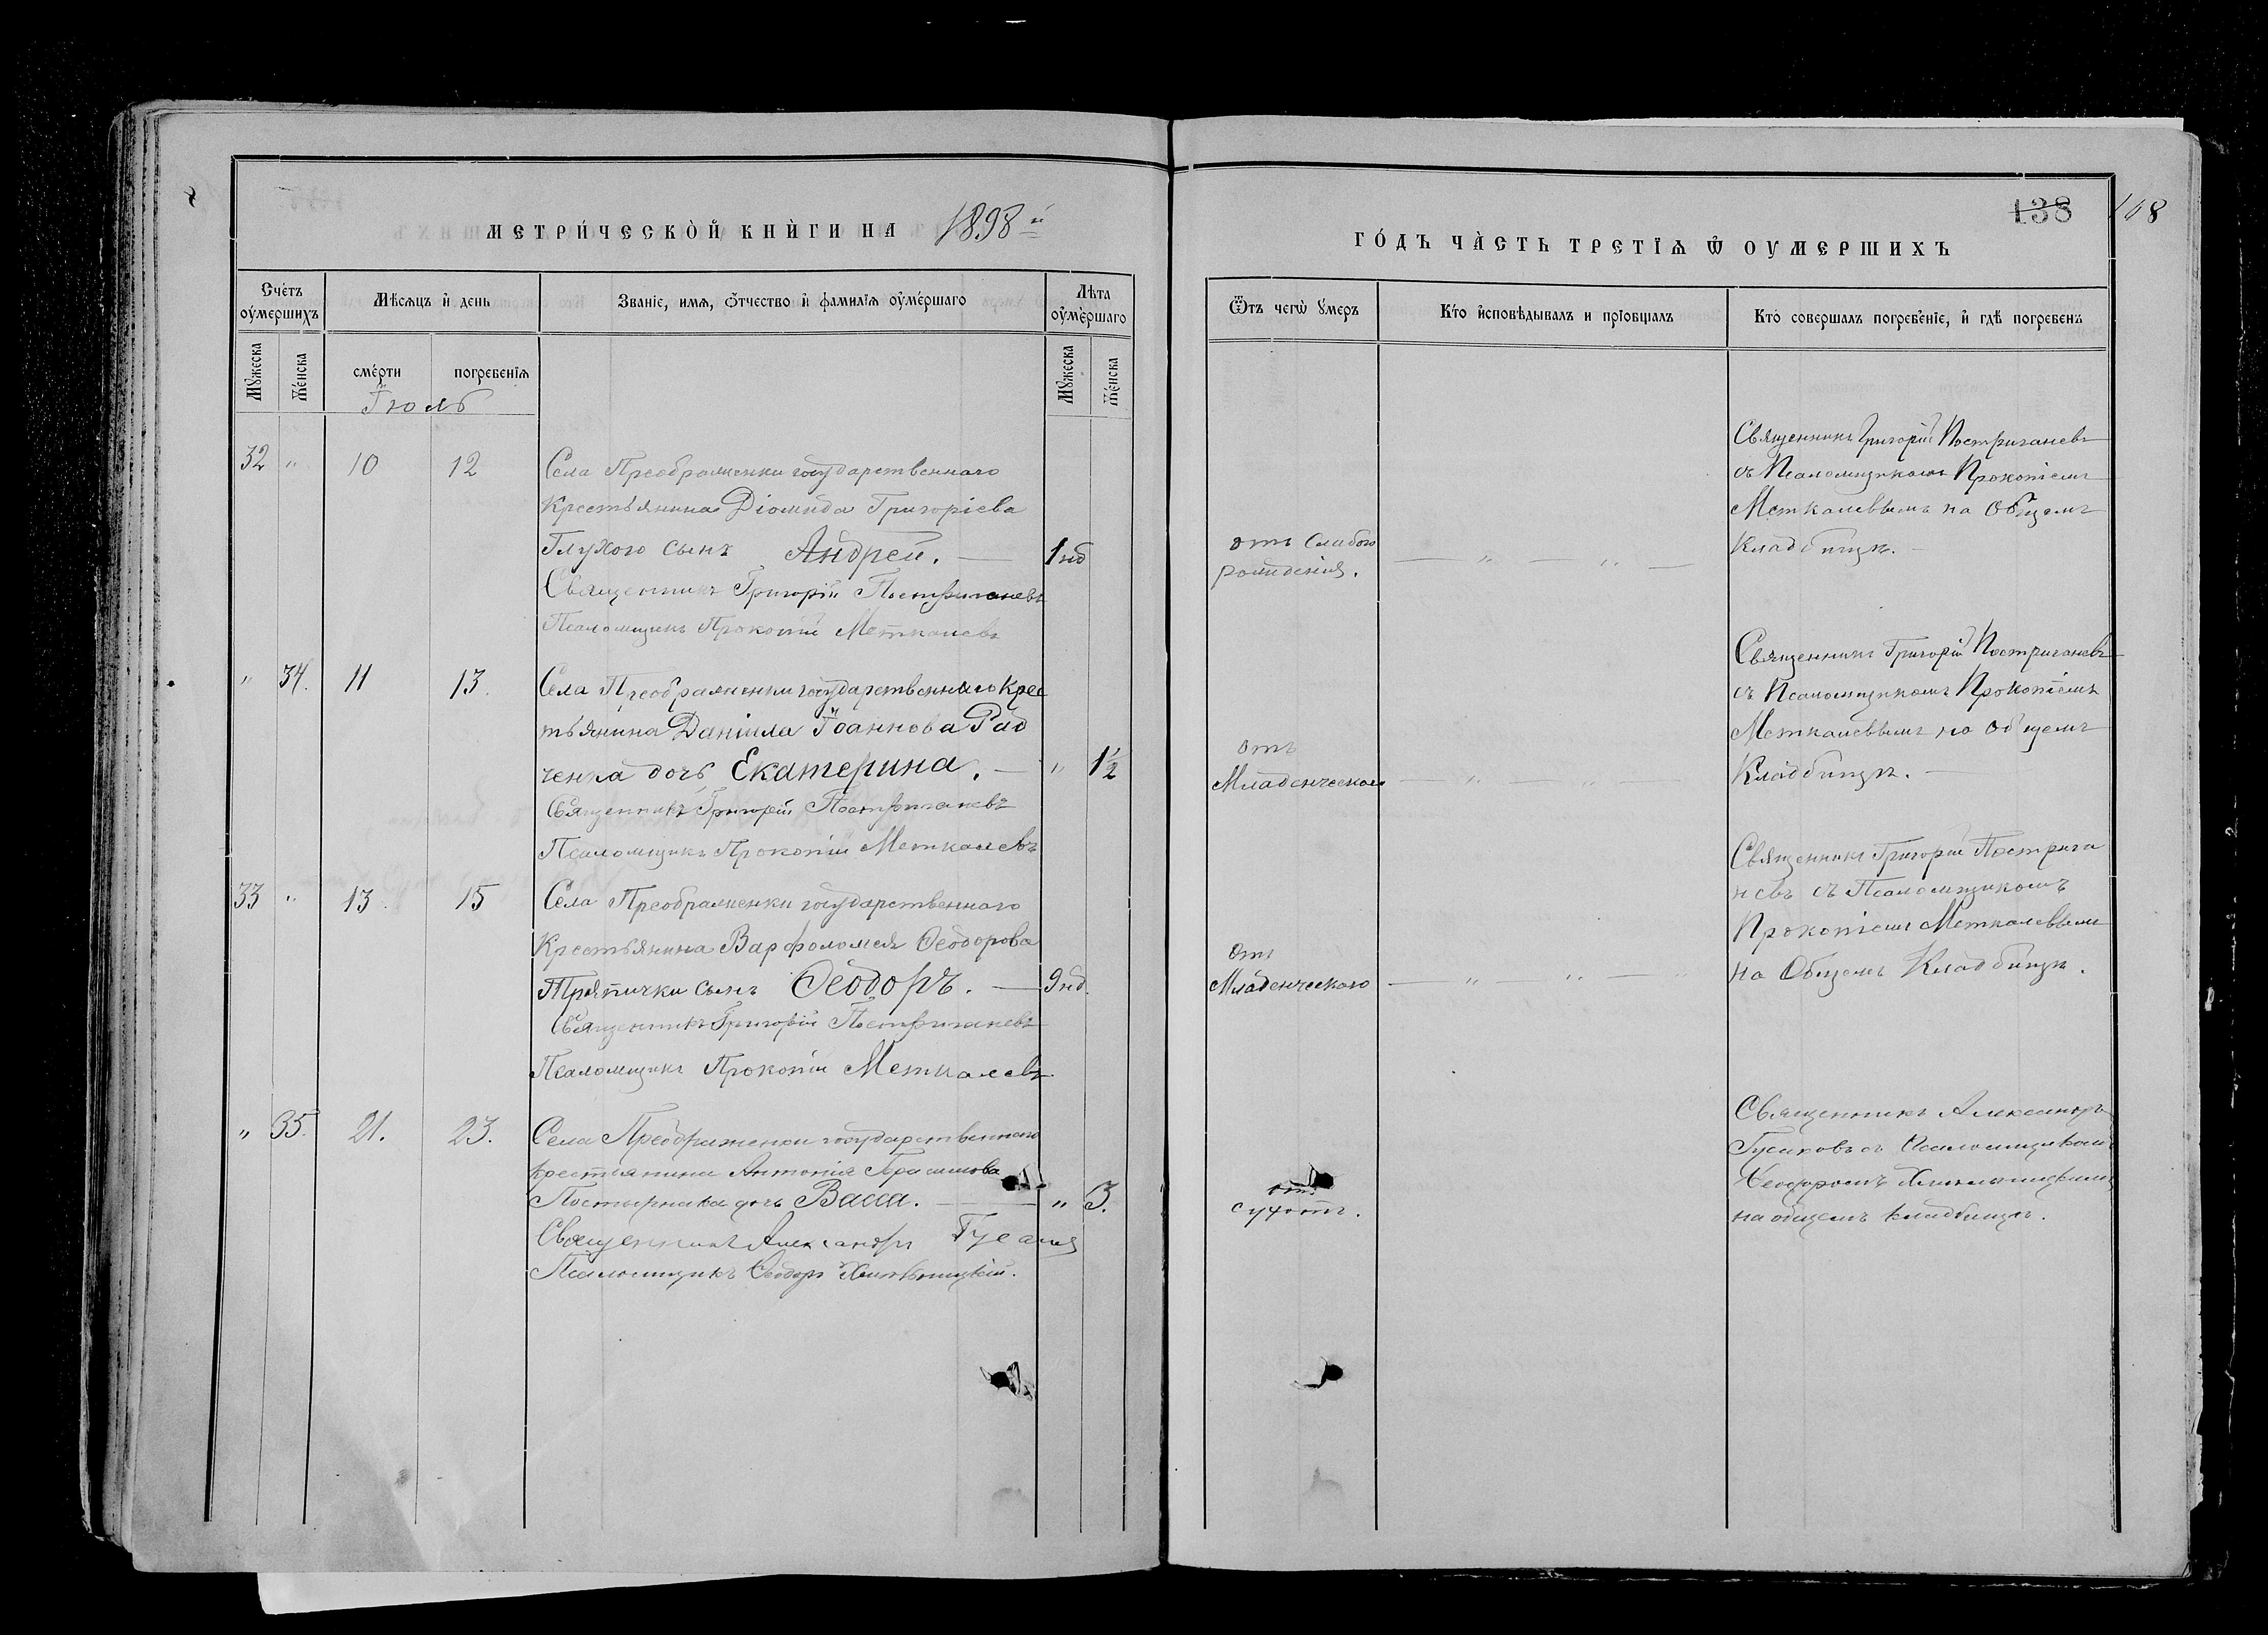 МЕТРИ́ЧЕСКО̀Й КНЍГИ НА 1898й
ГО́ДЪ ЧА̀СТЬ ТРЕТІѦ Ѿ ОУМЕРШИХЪ
138 108
Счетъ оумершихъ
Мѣсяцъ и день
Званіе, имя, отчество и фамилія оумершаго
Лѣта оумершаго
Ѿтъ чегѡ умеръ
Кто исповѣдывалъ и пріобщалъ
Кто совершалъ погребеніе, и гдѣ погребенъ
Мужеска
Женска
смерти
погребенія
Мужеска
Женска
Іюль
32 " 10 12
Села Преображенки государственнаго
крестьянина Діомида Григоріева
Глухого сынъ Андрей. — 1 нд
Священникъ Григорій Постриганевъ
Псаломщикъ Прокопій Меткалевъ
отъ слабого
рожденія.
Священникъ Григорій Постриганевъ
съ Псаломщикомъ Прокопіемъ
Меткалевымъ на Общемъ
Кладбищѣ. —
" 34. 11 13.
Села Преображенки государственнаго крес
тьянина Даніила Іоаннова Рад
ченка дочь Екатерина. — " 1½
Священникъ Григорій Постриганевъ
Псаломщикъ Прокопій Меткалевъ
отъ
Младенческаго
Священникъ Григорій Постриганевъ
съ Псаломщикомъ Прокопіемъ
Меткалевымъ на Общемъ
Кладбищѣ. —
33 " 13. 15
Села Преображенки государственнаго
Крестьянина Варфоломея Ѳеодорова
Тряпички сынъ Ѳеодоръ. — 9 нд.
Священникъ Григорій Постриганевъ
Псаломщикъ Прокопій Меткалевъ
Отъ
Младенческаго
Священникъ Григорій Пострига
невъ съ Псаломщикомъ
Прокопіемъ Меткалевымъ
на Общемъ Кладбищѣ.
" 35. 21. 23.
Села Преображенки государственнаго
крестьянина Антонія Герасимова
дочь Васса. — " 3.
Священникъ Александръ
Псаломщикъ Ѳеодоръ Хмѣльницкій.
отъ
сухотъ.
Священникъ Александръ
съ Псаломщикомъ
Ѳеодоромъ Хмѣльницкимъ
на общемъ кладбищѣ.